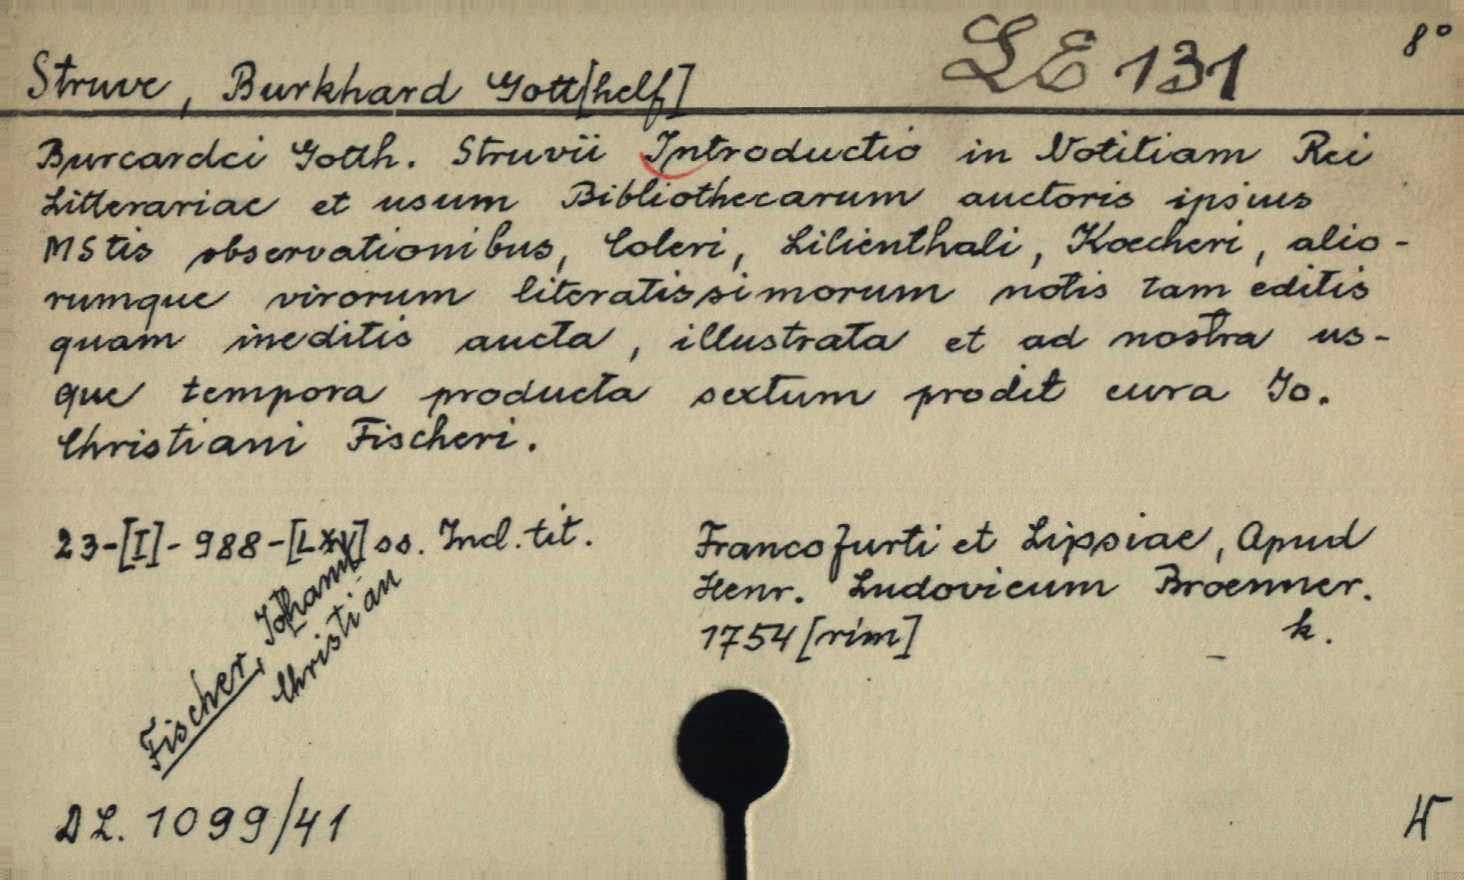 LE 131
8°
Struve, Burkhard Gott[helf]
Burcardci Gotth. Struvii Introductio in Notitiam Rei
Litterariae et usum Bibliothecarum auctoris ipsius
MStis observationibus, Coleri, Lilienthali, Koecheri, alio-
rumque virorum literatissimorum notis tam editis
quam ineditis aucta, illustrata et ad nostra us-
que tempora producta sextum prodit cura Jo.
Christiani Fischeri.
23-[I]-988-[LXV] ss. Incl. tit.
Francofurti et Lipsiae, Apud
Henr. Ludovicum Broenner.
1754 [rim]
k.
Fischer, Johann
Christian
DL. 1099/41